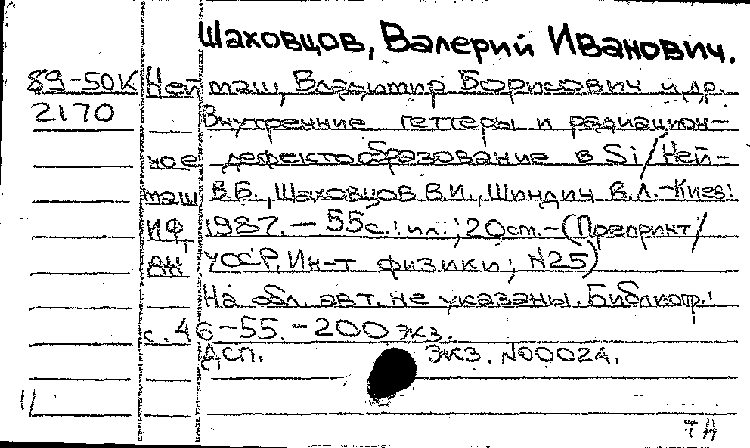 Шаховцов, Валерий Иванович.
89-50К Нейташ, Владимир Борисович и др.
2170 Внутренние геттеры и радиацион-
ное дефектообразование в Si / Ней-
таш В.Б., Шаховцов В.И., Шиндич В.Л. - Киев:
ИФ, 1987. - 55 с.: ил.; 20 см. - (Препринт /
АН УССР, Ин-т физики; N25)
На обл. авт. не указаны. Библиогр.:
с. 46-55. - 200 экз.
ДСП. экз. N00024.